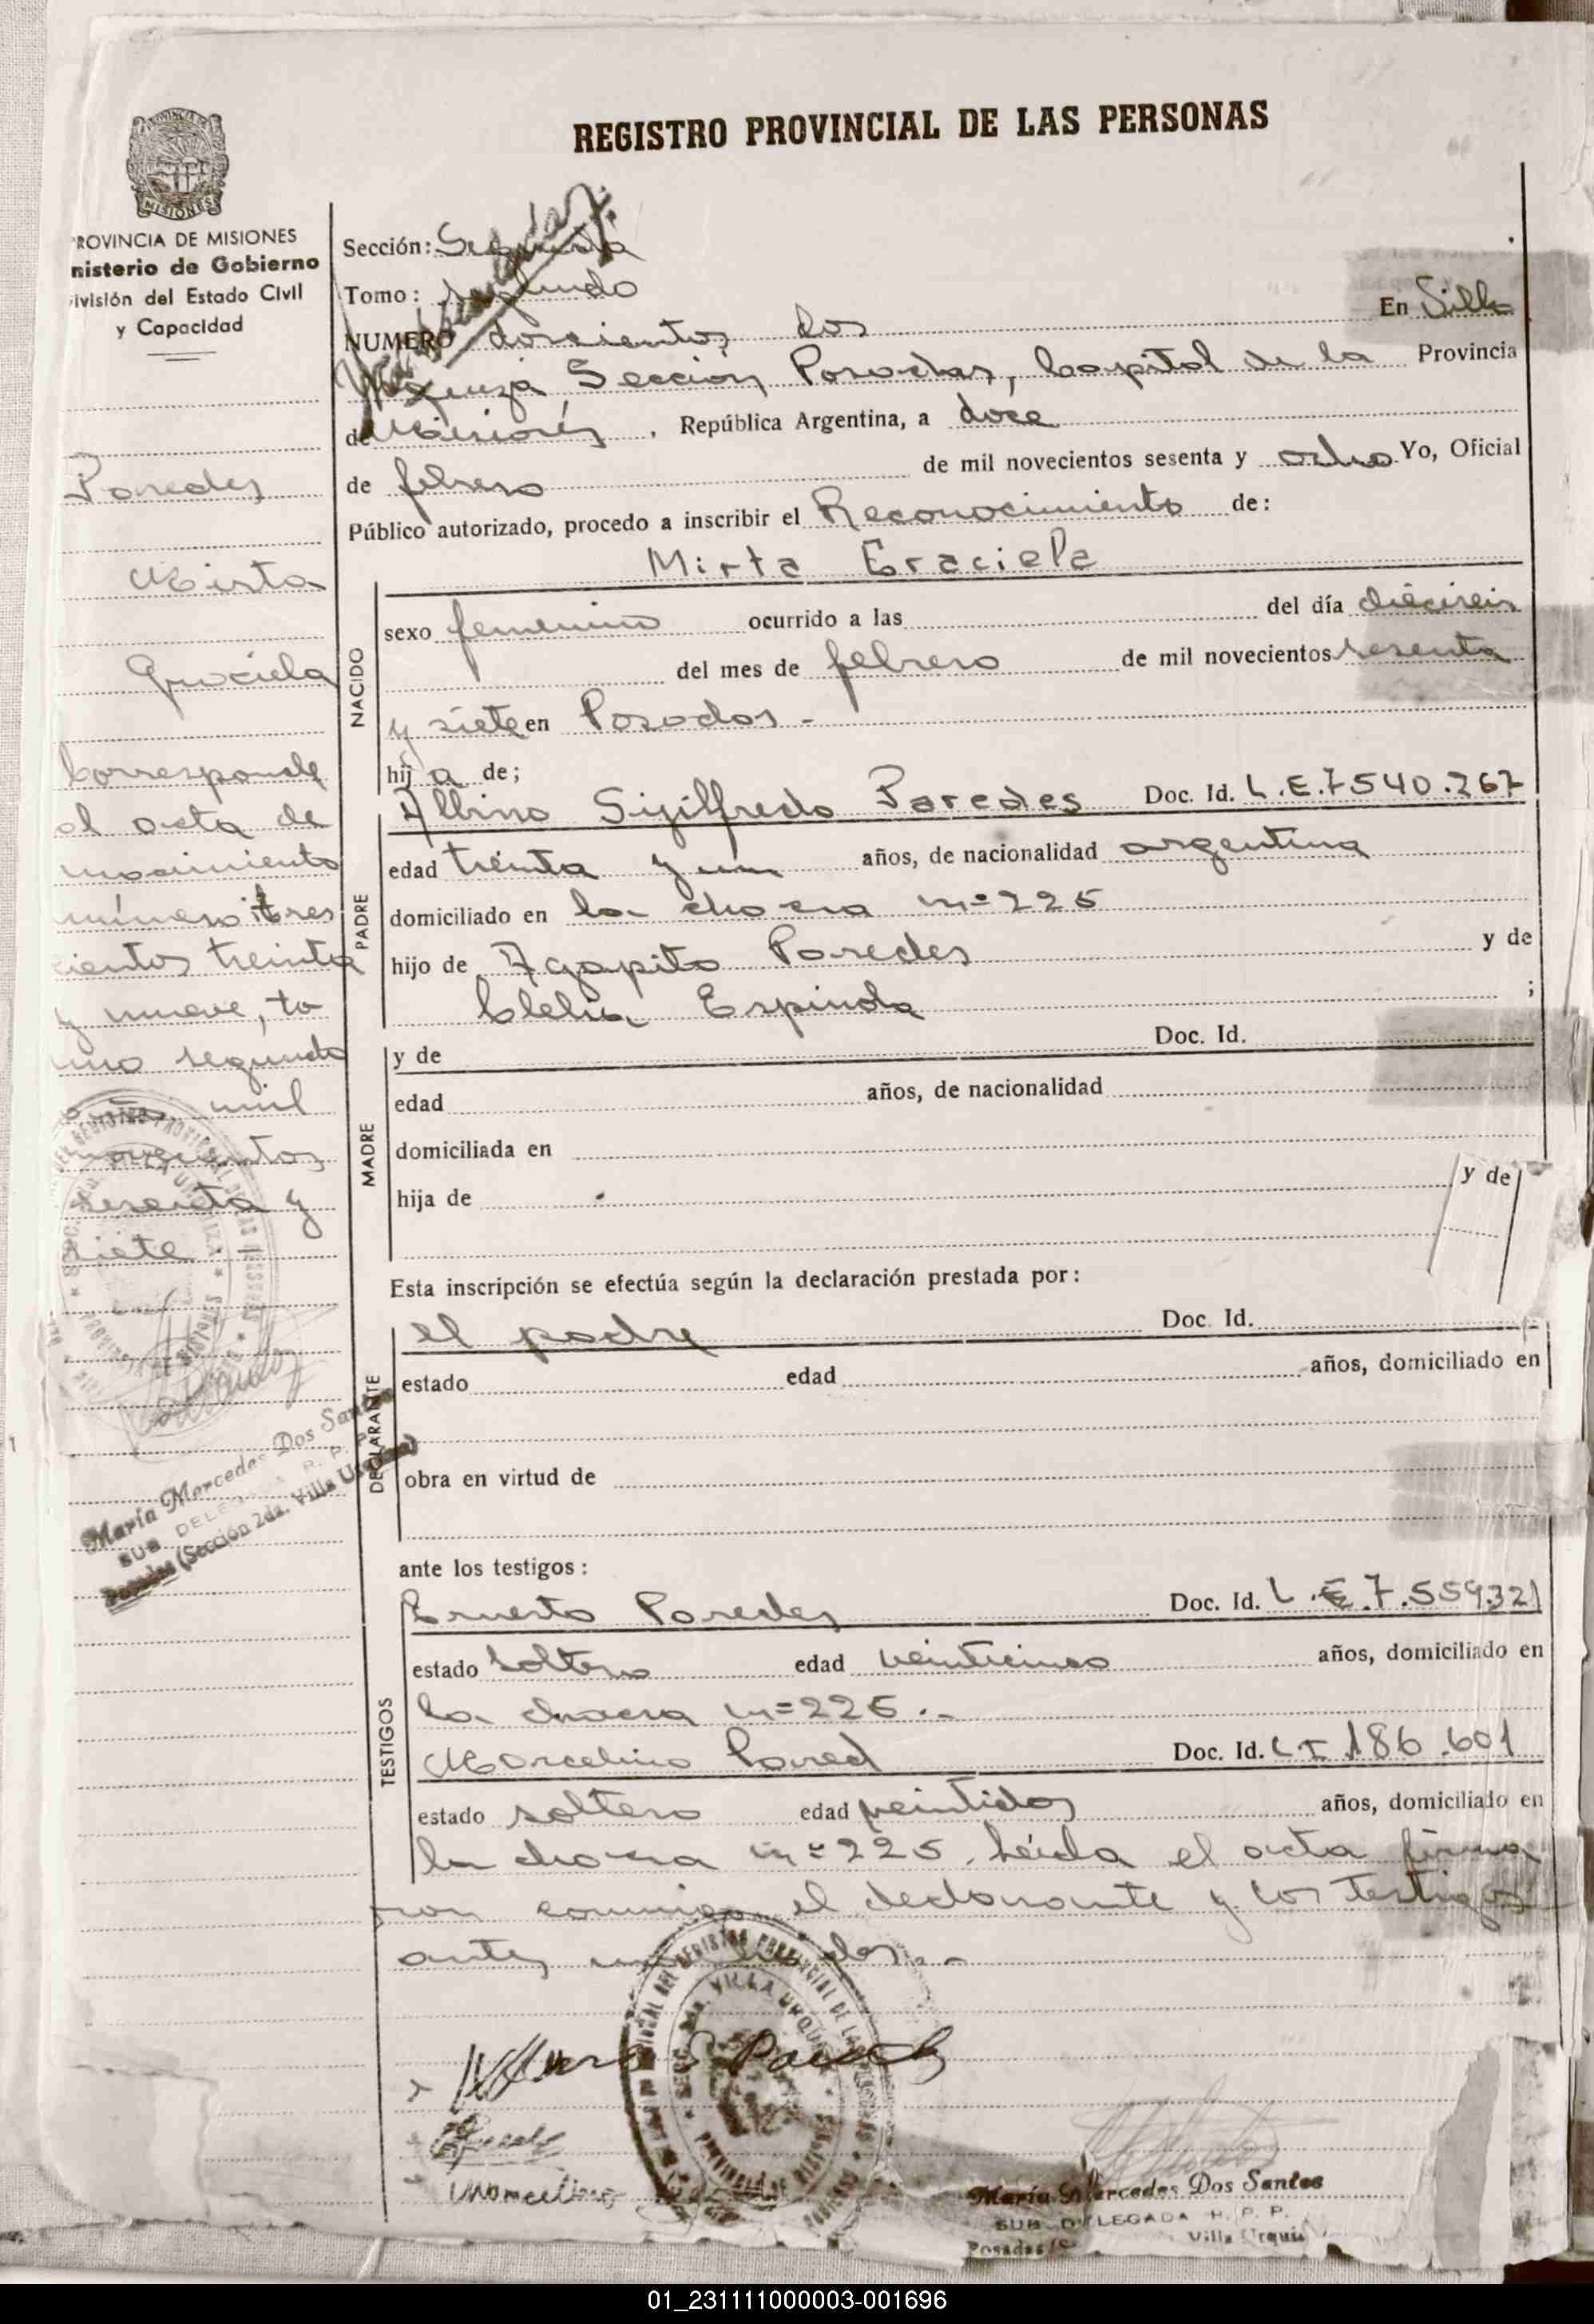 REGISTRO PROVINCIAL DE LAS PERSONAS
PROVINCIA DE MISIONES
MISIONES
ROVINCIA DE MISIONES
nisterio de Gobierno
ivisión del Estado Civil
y Capacidad
Paredes
Mirta
Graciela
Corresponde
al acta de
nacimiento
número tres
cientos treinta
y nueve, to
mo segundo
mil
novecientos
sesenta y
siete
María Mercedes Dos Santos
SUB DELEGADA R. P. P.
Posadas (Sección 2da. Villa Urquiza)
Sección: Segunda
Tomo: segundo
NUMERO doscientos dos En Villa
Urquiza Sección Posadas, Capital de la Provincia
de Misiones, República Argentina, a doce
de febrero de mil novecientos sesenta y ocho Yo, Oficial
Público autorizado, procedo a inscribir el Reconocimiento de:
Mirta Graciela
NACIDO
sexo femenino ocurrido a las del día dieciseis
del mes de febrero de mil novecientos sesenta
y siete en Posadas -
hij a de;
PADRE
Albino Sigilfredo Paredes Doc. Id. L.E.7540.267
edad treinta y un años, de nacionalidad argentina
domiciliado en la chacra nº 225
hijo de Agapito Paredes y de
Clelia Espindola ;
MADRE
y de Doc. Id.
edad años, de nacionalidad
domiciliada en
hija de y de
Esta inscripción se efectúa según la declaración prestada por:
DECLARANTE
el padre Doc. Id.
estado edad años, domiciliado en
obra en virtud de
ante los testigos:
TESTIGOS
Ernesto Paredes Doc. Id. L.E.7.559.321
estado soltero edad veinticinco años, domiciliado en
la chacra nº 225.-
Marcelino Pared Doc. Id. L I 186.601
estado soltero edad veintidos años, domiciliado en
la chacra nº 225. Leida el acta firma
ron conmigo el declarante y los testigos
antes
María Mercedes Dos Santos
SUB DELEGADA R. P. P.
Posadas Villa Urqui
01_231111000003-001696